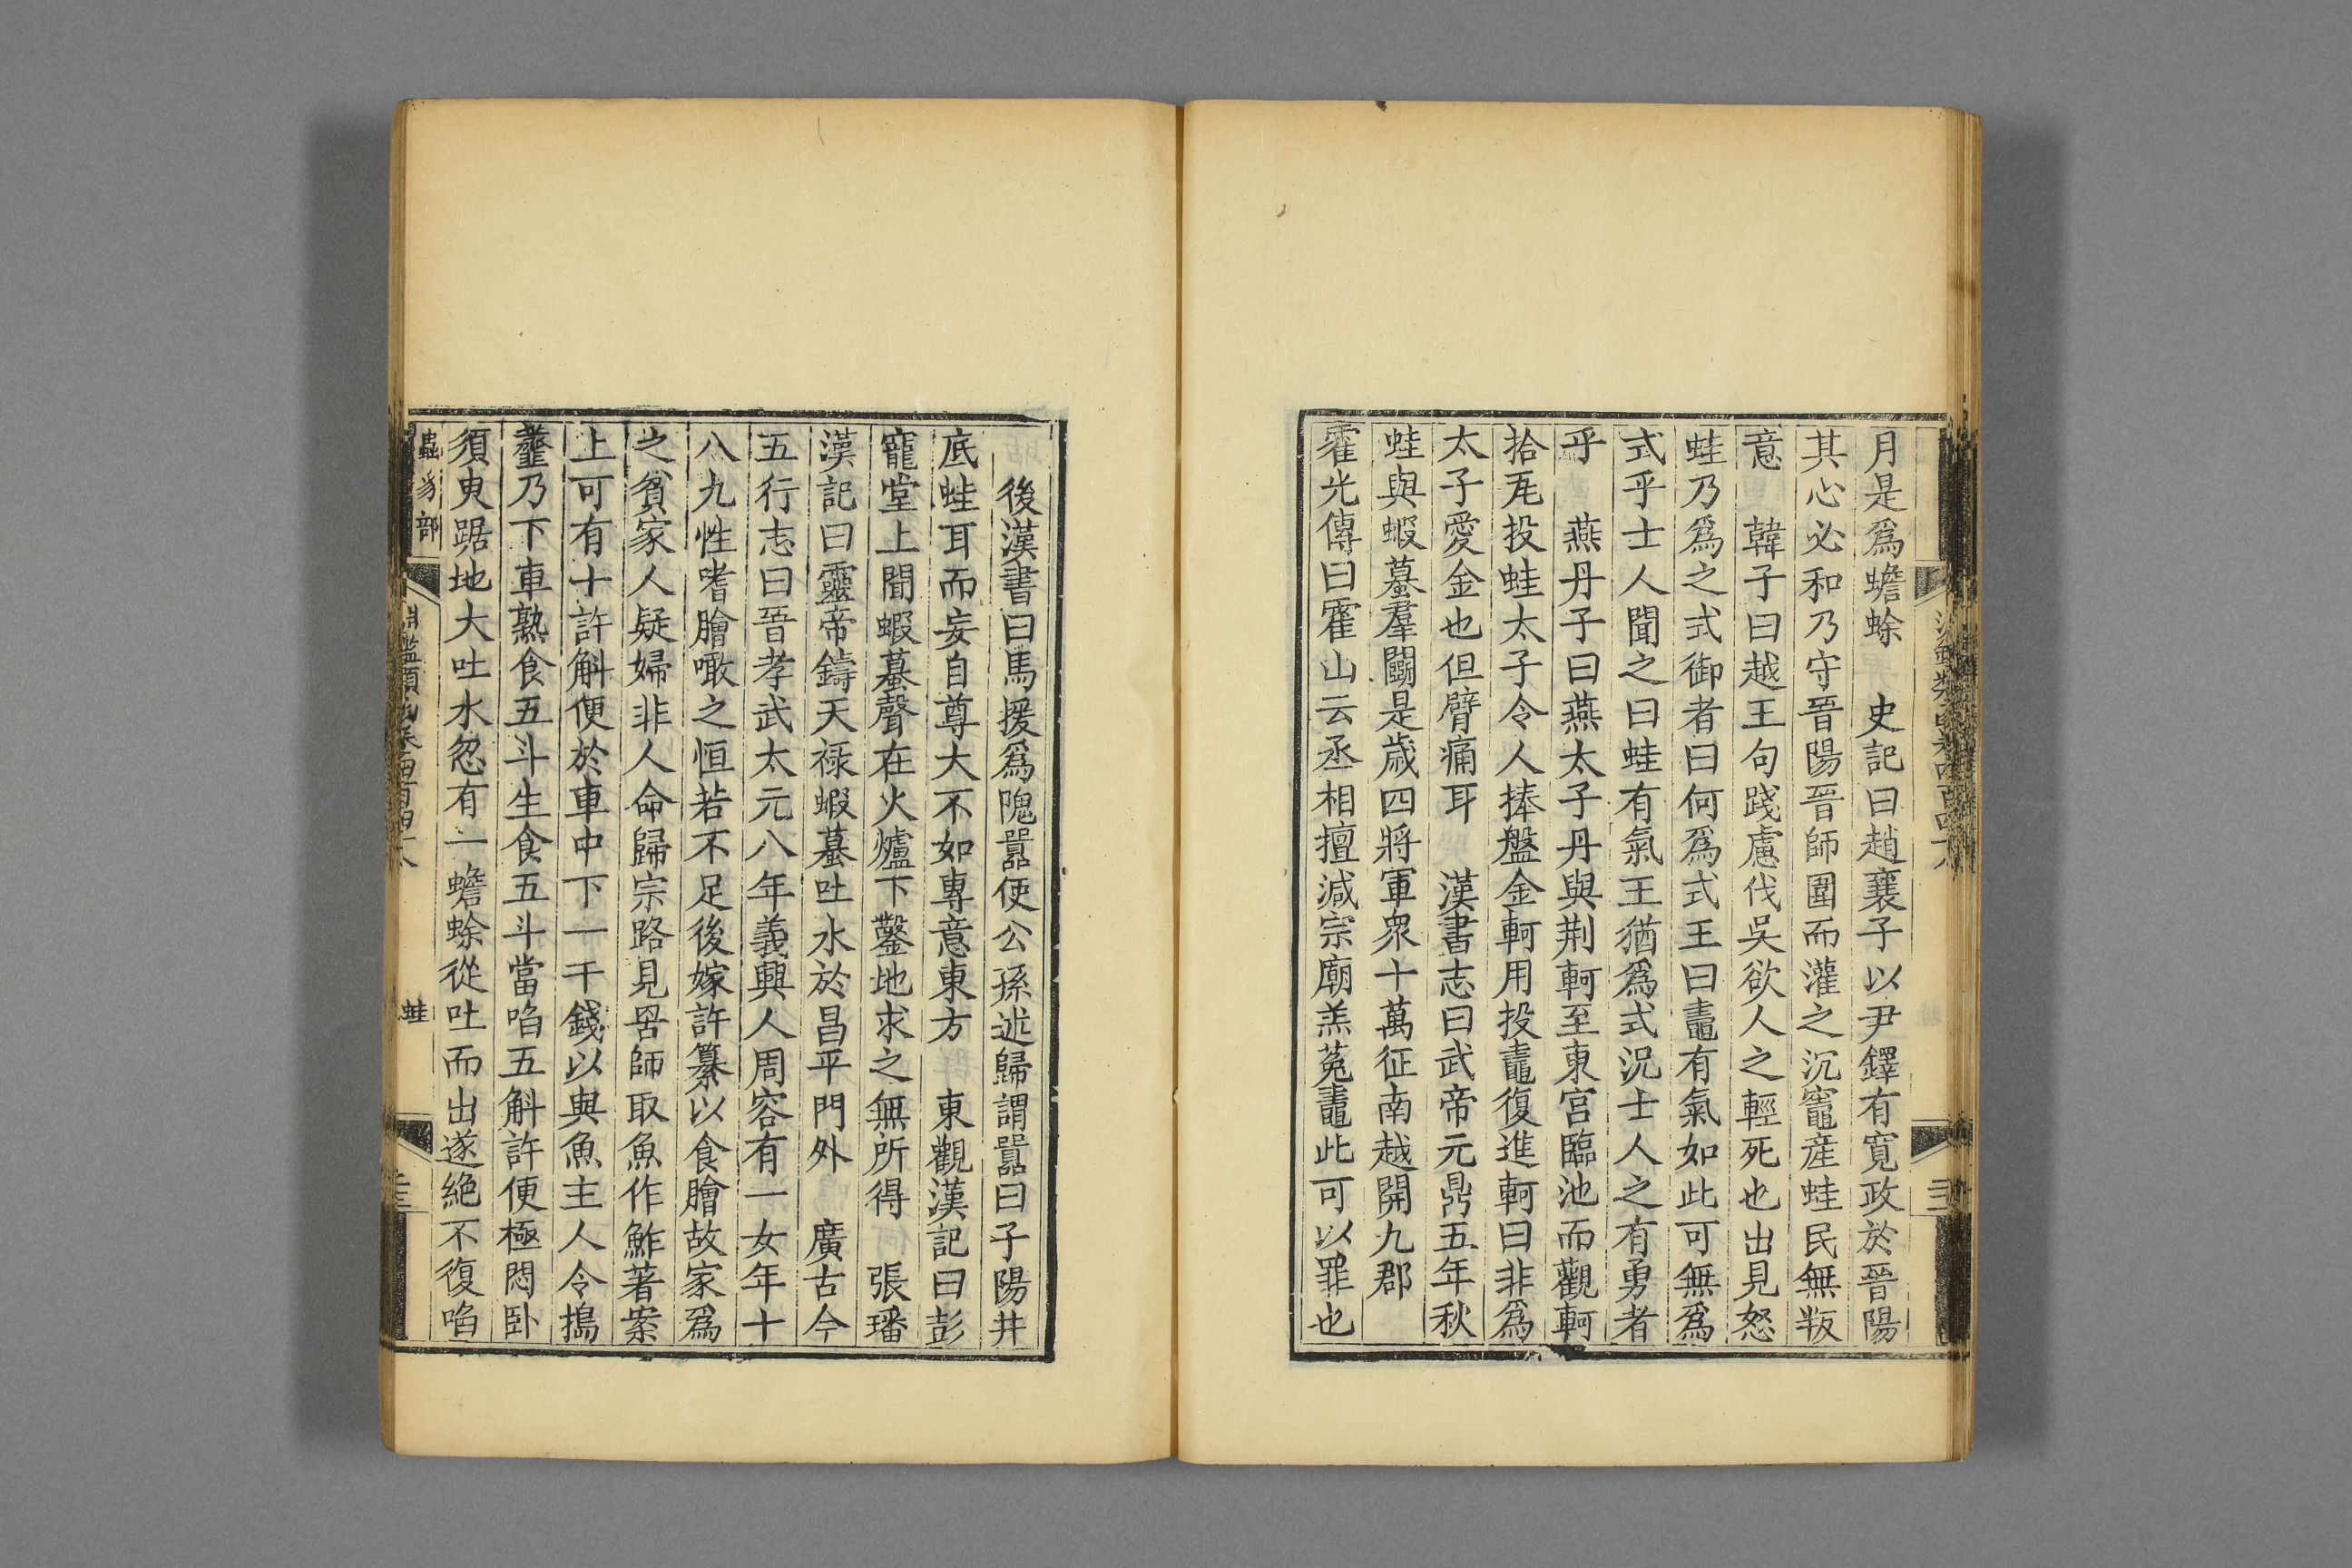 月是爲蟾蜍　史記曰趙襄子以尹鐸有寛政於晉陽
其心必和乃守晉陽晉師圍而灌之沉竈産蛙民無叛
意　韓子曰越王句踐慮伐吳欲人之輕死也出見怒
蛙乃爲之式御者曰何爲式王曰鼃有氣如此可無爲
式乎士人聞之曰蛙有氣王猶爲式況士人之有勇者
乎　燕丹子曰燕太子丹與荆軻至東宫臨池而觀軻
拾瓦投蛙太子令人捧盤金軻用投鼃復進軻曰非爲
太子愛金也但臂痛耳　漢書志曰武帝元鼎五年秋
蛙與蝦蟇羣鬭是歲四將軍衆十萬征南越開九郡
霍光傳曰霍山云丞相擅減宗廟羔菟鼃此可以罪也
後漢書曰馬援爲隗囂使公孫述歸謂囂曰子陽井
底蛙耳而妄自尊大不如專意東方　東觀漢記曰彭
寵堂上聞蝦蟇聲在火爐下鑿地求之無所得　張璠
漢記曰靈帝鑄天祿蝦蟇吐水於昌平門外　廣古今
五行志曰晉孝武太元八年義興人周容有一女年十
八九性嗜膾噉之恒若不足後嫁許纂以食膾故家爲
之貧家人疑婦非人命歸宗路見罟師取魚作鮓著案
上可有十許斛便於車中下一千錢以與魚主人令搗
虀乃下車熟食五斗生食五斗當啗五斛許便極悶卧
須臾踞地大吐水忽有一蟾蜍從吐而出遂絶不復啗
蟲豸部
鑑類函卷四百四十八
蛙